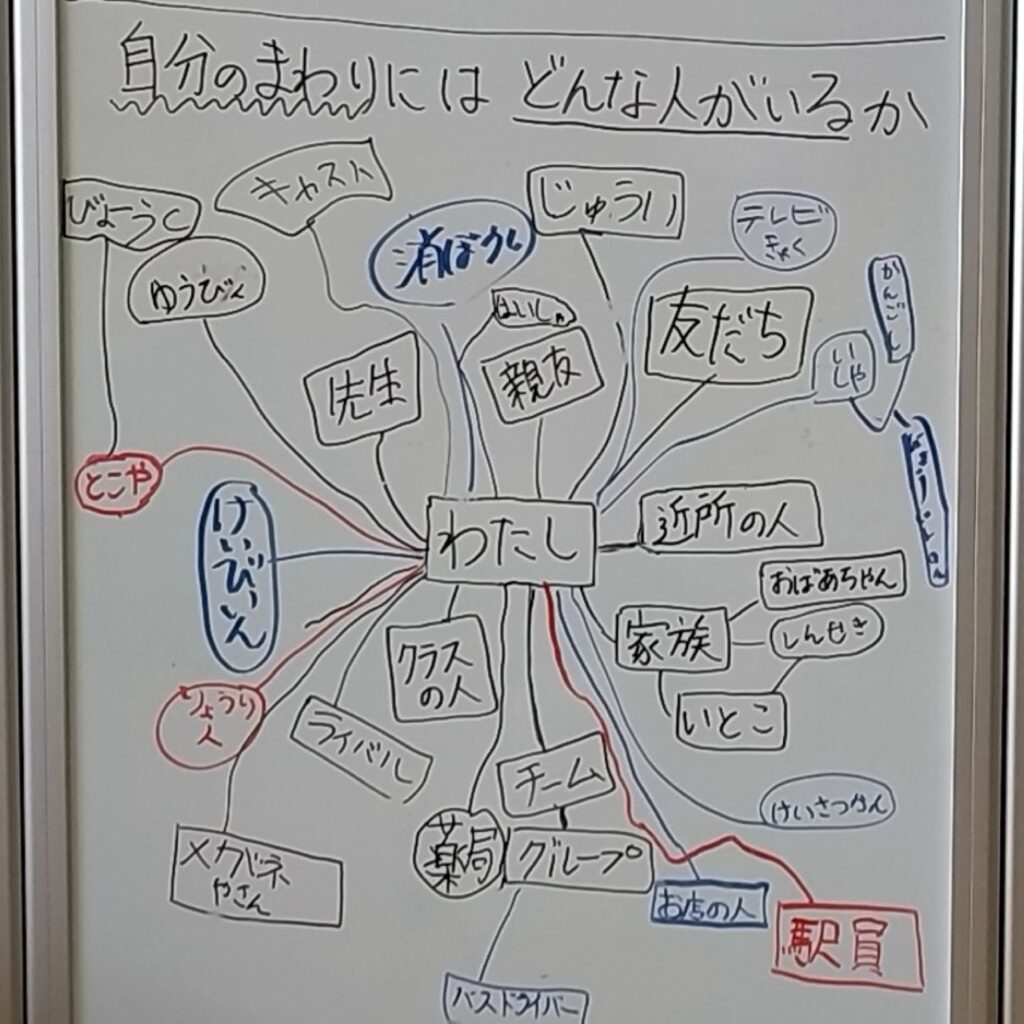 自分のまわりには どんな人がいるか
キャスト
じゅうい
びょうく
テレビ
きょく
消ぼうし
ゆうびん
はいしゃ
友だち
かんごし
いしゃ
先生
親友
とこや
けいびいん
わたし
近所の人
おばあちゃん
家族
しんせき
クラス
の人
いとこ
りょうり
人
ライバル
チーム
けいさつかん
薬局
グループ
メガネ
やさん
お店の人
駅員
バスドライバー